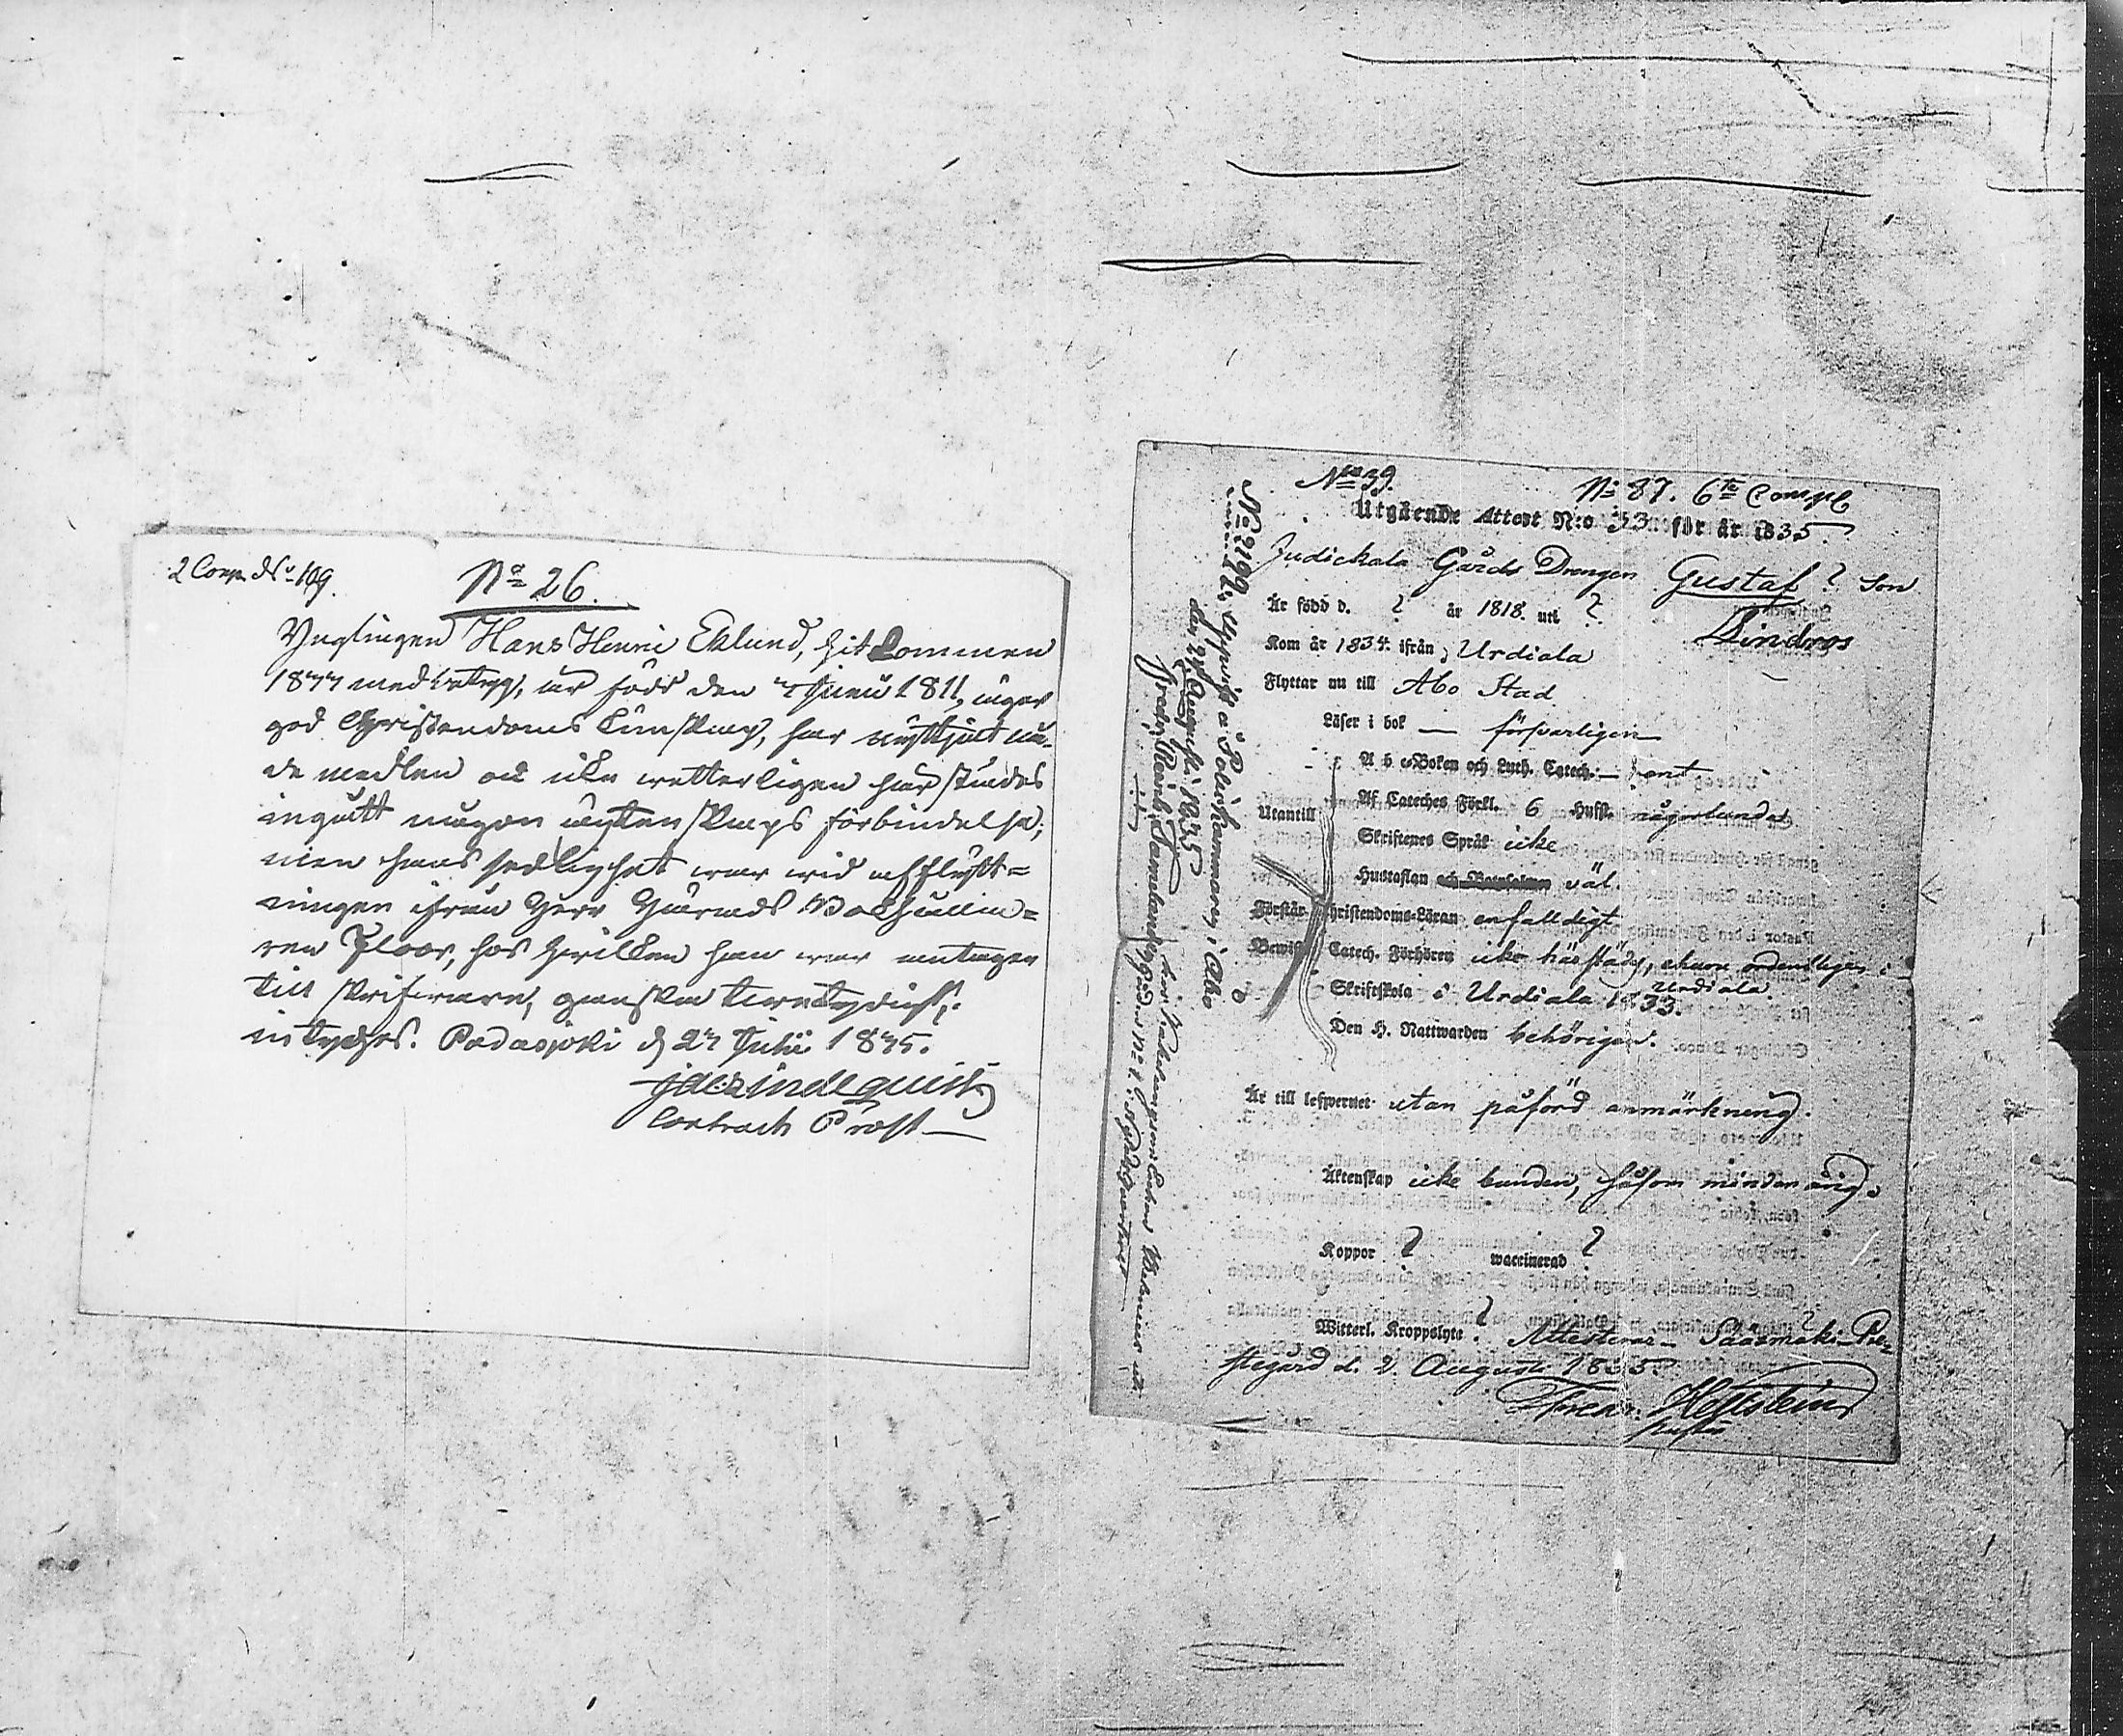 2 Comp. No 109.
No 26.
Ynglingen Hans Henric Eklund, hitkommen
1833 med betyg, är född den 4 Junii 1811, äger
god Christendoms kunskap, har nyttjat nå-
de medlen och icke wetterligen härstädes
ingått någon ägtenskaps förbindelse;
men hans sedlighet war wid afflytt-
ningen ifrån Herr Härads Bokhålla-
ren Floor, hos hwilken han war antagen
till skrifware, ganska twetydig;
intyghas. Padasjoki d. 27 Julii 1835.
Lindequist
Contracts Prost
No 39.
No 87. 6te Comp
Utgående Attest N:o 53 för år 1835.
Judickala Gårds Drengen Gustaf ? Son
Lindroos
Är född d. ? år 1818. uti ?
Kom år 1834. ifrån Urdiala
Flyttar nu till Åbo Stad
Läser i bok — försvarligen
A b c-Boken och Luth. Catech.
Utantill Af Cateches Förkl. 6 Hufst. någorlunda
Skriftenes Språk icke
Hustaflan och Botpsalmen väl.
Förstår Christendoms-Läran enfalldigt
Bewist Catech. Förhören icke härstädes, ordentligen i
Urdiala
Skriftskola i Urdiala 1833.
Den H. Nattwarden behörigen.
Är till lefwernet utan påförd anmärkning.
Äktenskap icke bunden, såsom minderårig.
Koppor ? waccinerad ?
Witterl. Kroppslyte ? Attesterar Sääxmäki Pre-
stegård d. 2. Augusti 1835.
Hoffstein
Pastor
No 2199. Uppvist å Poliskammaren i Åbo
den 24 Augusti 1835